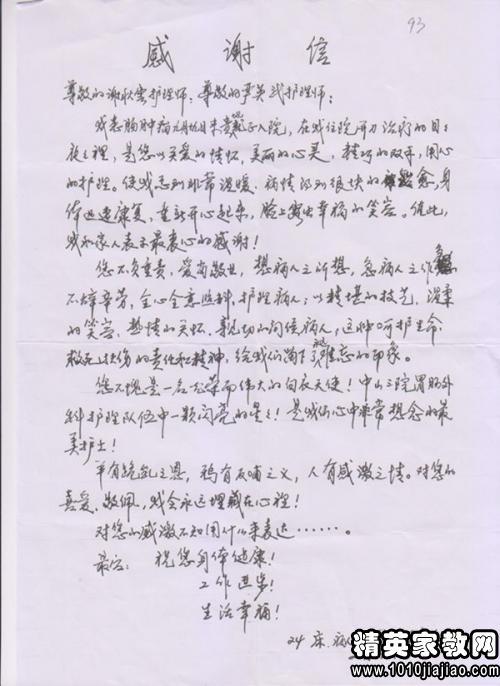 93
感谢信
尊敬的谢秋云护理师、尊敬的严英 护理师:
我患胸肿病 入院,在我住院开刀治疗的日
夜之裡,是您以关爱的情怀,美丽的心灵,精巧的双手,用心
的护理。使我感到非常温暖、病情得到很快的 愈,身
体迅速康复,重新开心起来,脸上露出幸福的笑容。值此,
我和家人表示最衷心的感谢!
您不负重责,爱岗敬业,想病人之所想,急病人之 急
不辞辛劳,全心全意照料,护理病人;以精堪的技艺,温柔
的笑容、热情的关怀、亲切的问候病人;这种呵护生命,
救死扶伤的责任和精神,给我们留下了 难忘的印象。
您不愧是一名光荣而伟大的白衣天使!中山三院胃肠外
科护理队伍中一颗闪亮的星星!是我们心中非常想念的最
美护士!
羊有跪乳之恩,鸦有反哺之义,人有感激之情。对您的
喜爱、敬佩,我会永远埋藏在心裡!
对您的感激不知用什么来表达······。
最后: 祝您身体健康!
工作进步!
生活幸福!
24床.病
精英家教网
www.1010jiajiao.com